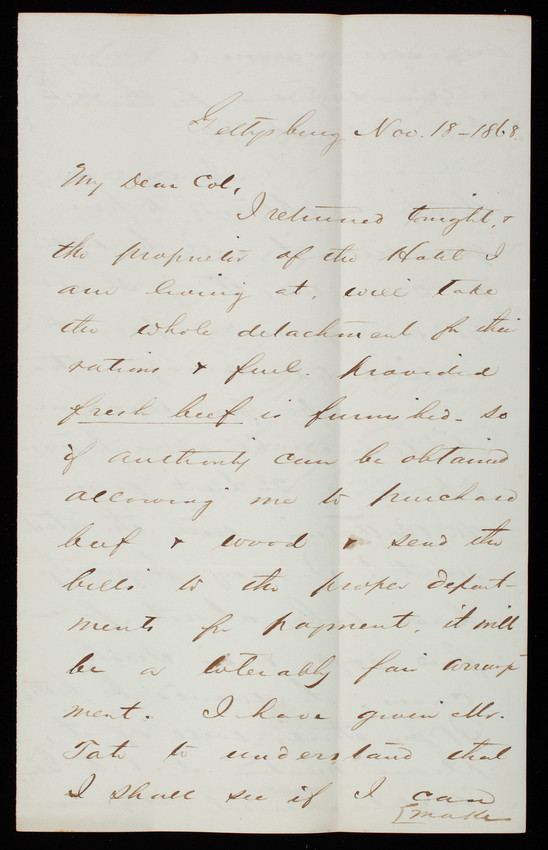 Gettysburg Nov. 18-1868.
My Dear Col.
I returned tonight, &
the proprietor of the Hotel I
am living at, will take
the whole detachment for their
rations & fuel. provided
fresh beef is furnished. So
if authority can be obtained
allowing me to purchase
beef & wood & send the
bills to the proper depart-
ments for payment, it will
be a tolerably fair arrange
ment. I have given Mr.
Tate to understand that
I shall see if I can
make